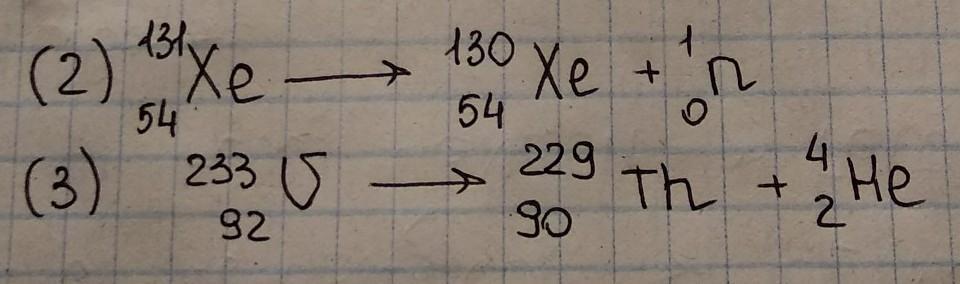 (2) ¹³¹₅₄Xe ⟶ ¹³⁰₅₄Xe + ¹₀n
(3) ²³³₉₂U ⟶ ²²⁹₉₀Th + ⁴₂He